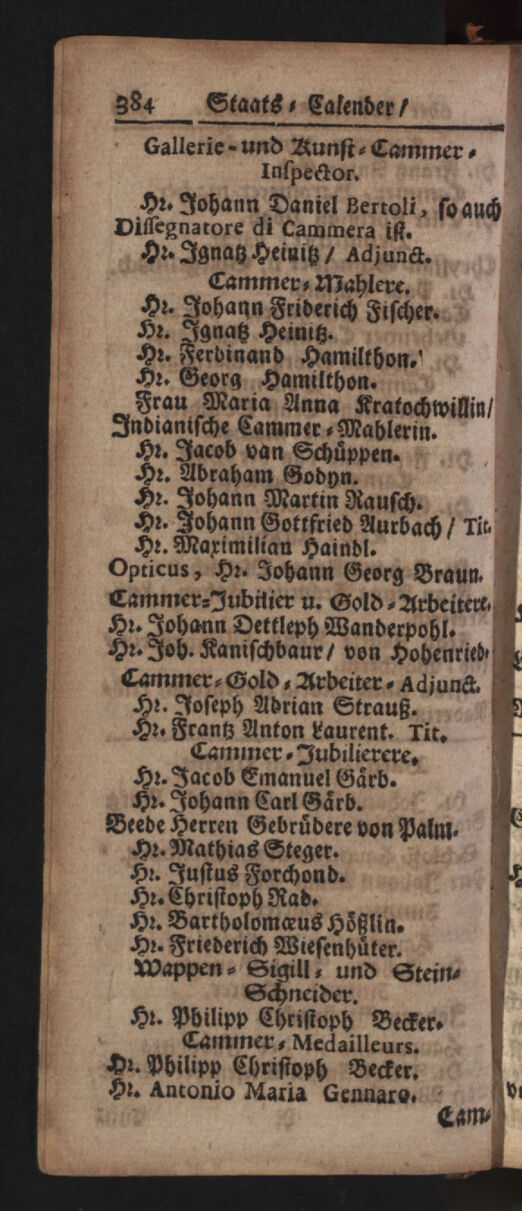 384 Staats-Calender/
Gallerie-und Kunst-Cammer-
Inspector.
Hr. Johann Daniel Bertoli, so auch
Dissegnatore di Cammera ist.
Hr. Ignatz Heinitz/ Adjunct.
Cammer-Mahlere.
Hr. Johann Friderich Fischer.
Hr. Ignatz Heinitz.
Hr. Ferdinand Hamilthon.
Hr. Georg Hamilthon.
Frau Maria Anna Kratochwillin/
Indianische Cammer-Mahlerin.
Hr. Jacob van Schüppen.
Hr. Abraham Godyn.
Hr. Johann Martin Rausch.
Hr. Johann Gottfried Aurbach/ Tit.
Hr. Maximilian Haindl.
Opticus, Hr. Johann Georg Braun.
Cammer-Jubilier u. Gold-Arbeitere.
Hr. Johann Dettleph Wanderpohl.
Hr. Joh. Kanischbaur/ von Hohenried.
Cammer-Gold-Arbeiter-Adjunct.
Hr. Joseph Adrian Strauß.
Hr. Frantz Anton Laurent. Tit.
Cammer-Jubilierere.
Hr. Jacob Emanuel Gärb.
Hr. Johann Carl Gärb.
Beede Herren Gebrüdere von Palm.
Hr. Mathias Steger.
Hr. Justus Forchond.
Hr. Christoph Rad.
Hr. Bartholomæus Hößlin.
Hr. Friederich Wiesenhüter.
Wappen-Sigill-und Stein-
Schneider.
Hr. Philipp Christoph Becker.
Cammer-Medailleurs.
Hr. Philipp Christoph Becker.
Hr. Antonio Maria Gennaro.
Cam-